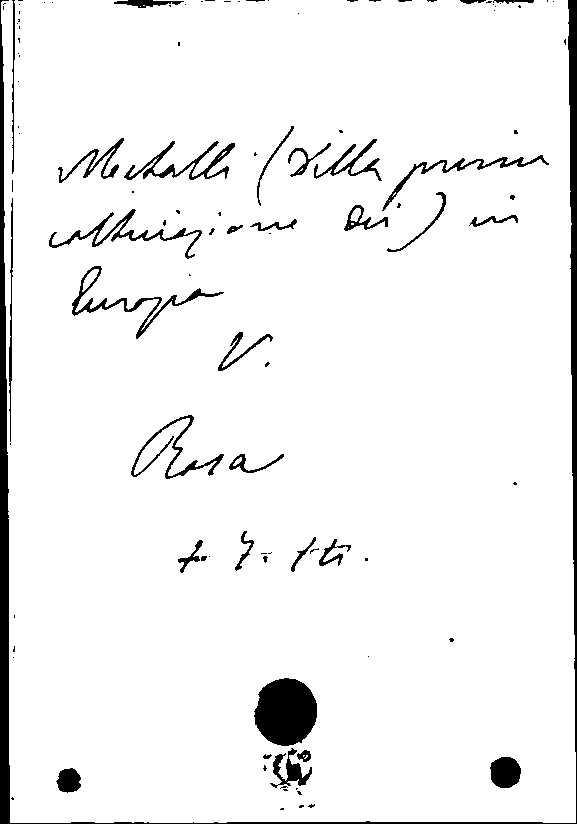 Metalli (Della prima
coltivazione dei) in
Europa
V.
Rosa